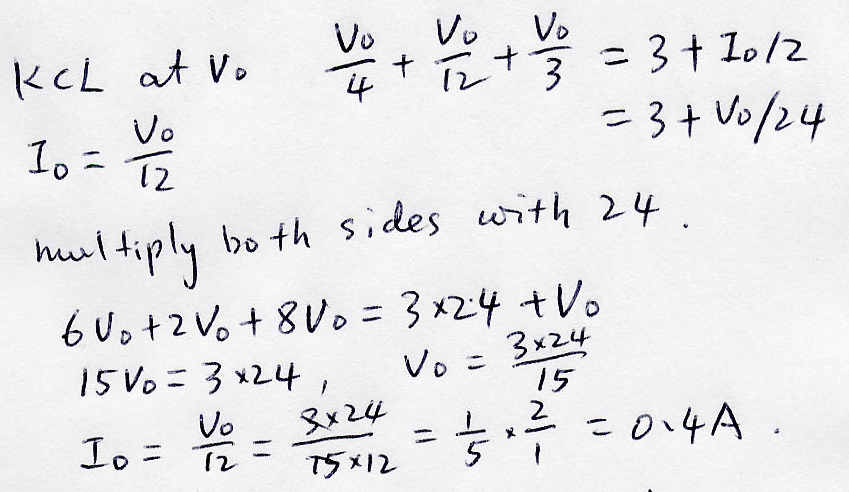 KCL at Vo   Vo/4 + Vo/12 + Vo/3 = 3 + Io/2
= 3 + Vo/24
Io = Vo/12
multiply both sides with 24.
6Vo + 2Vo + 8Vo = 3×24 + Vo
15Vo = 3×24, Vo = 3×24/15
Io = Vo/12 = 3×24/15×12 = 1/5 × 2/1 = 0.4A.